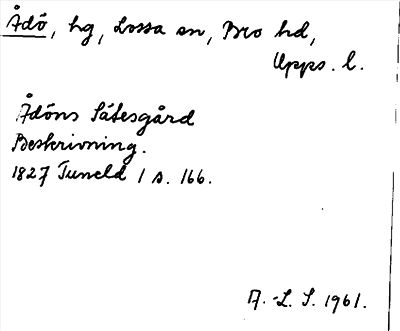 Ådö, hg, Lossa sn, Bro hd,
Upps. l.
Ådöns Sätesgård
Beskrivning.
1827 Tuneld I s. 166.
A.-L. S. 1961.